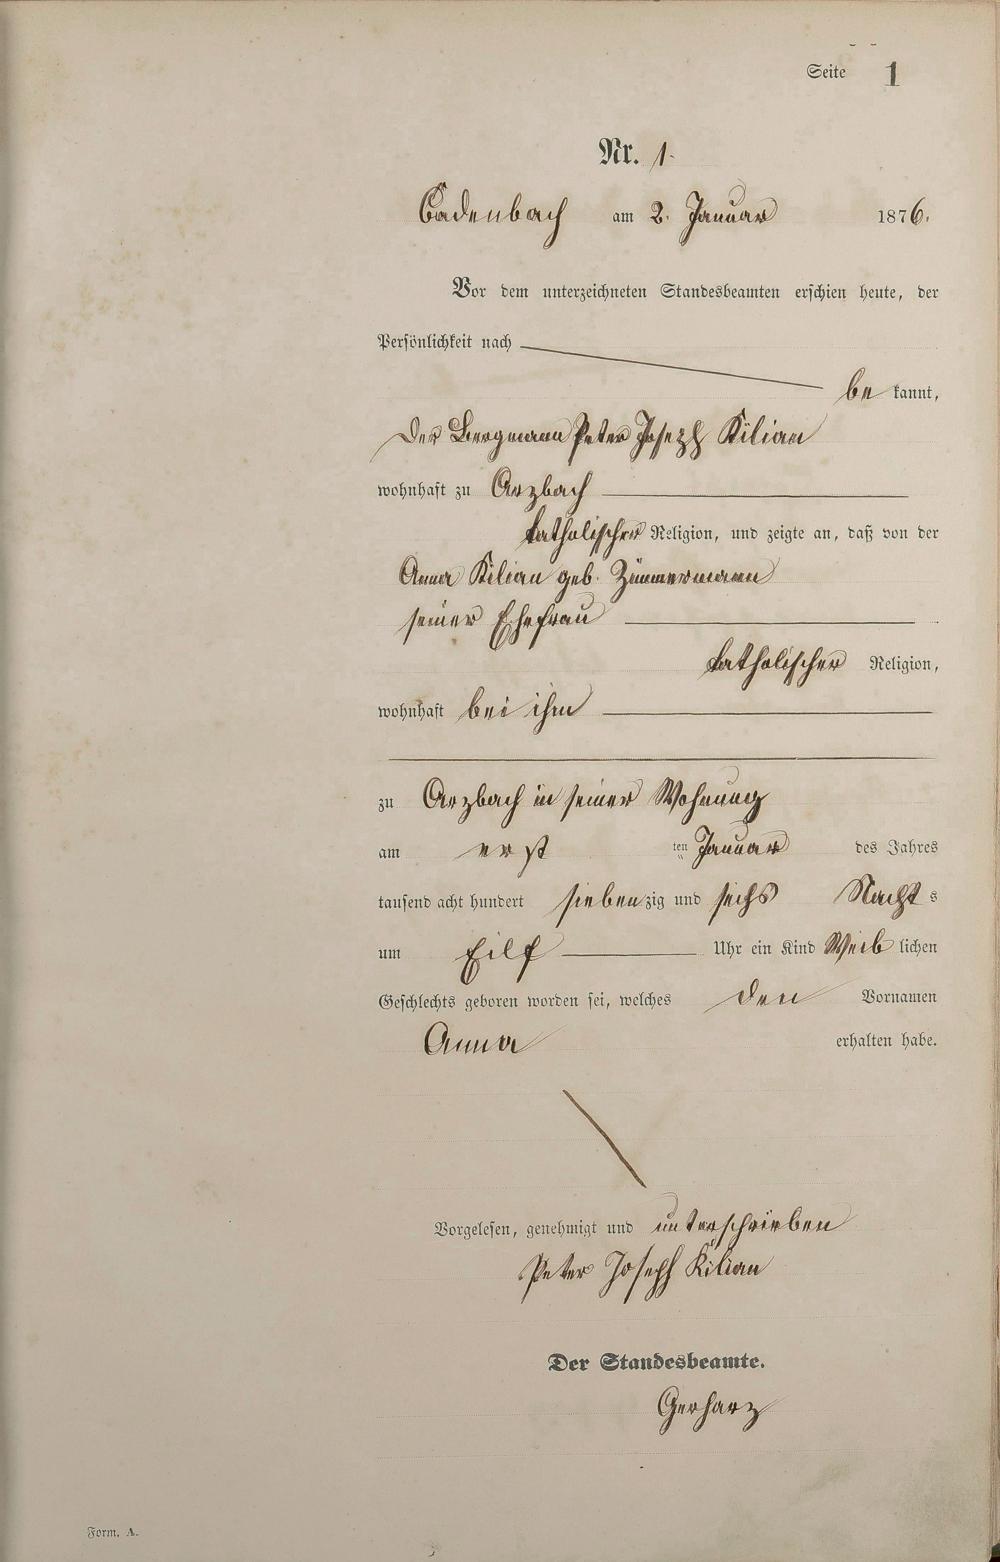 Seite 1
Nr. 1.
Cadenbach am 2. Januar 1876.
Vor dem unterzeichneten Standesbeamten erschien heute, der
Persönlichkeit nach
be kannt,
der Bergmann Peter Joseph Kilian
wohnhaft zu Arzbach
katholischer Religion, und zeigte an, daß von der
Anna Kilian geb. Zimmermann
seiner Ehefrau
katholischer Religion,
wohnhaft bei ihm
zu Arzbach in seiner Wohnung
am erst ten Januar des Jahres
tausend acht hundert siebenzig und sechs Nacht s
um Eilf Uhr ein Kind Weib lichen
Geschlechts geboren worden sei, welches den Vornamen
Anna erhalten habe.
Vorgelesen, genehmigt und unterschrieben
Peter Joseph Kilian
Der Standesbeamte.
Gerharz
Form. A.